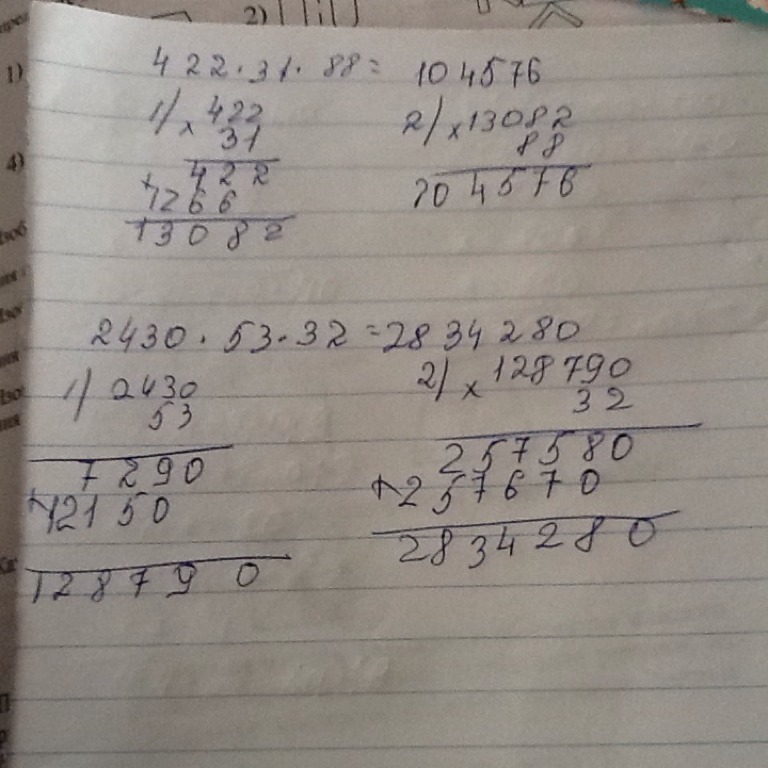 2)
1)
4)
422 · 31 · 88 = 104576
1) × 422
31
422
+ 1266
13082
2) × 13082
88
104576
2430 · 53 · 32 = 2834280
1) 2430
53
7290
+ 12150
128790
2) × 128790
32
257580
+ 257670
2834280